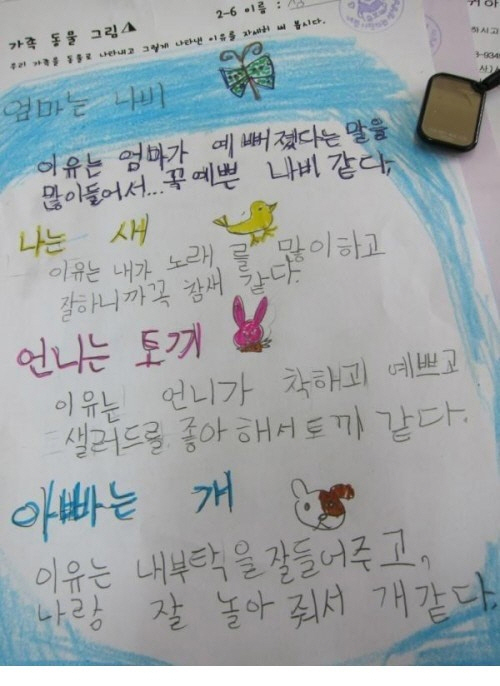 2-6 이름 :
가족 동물 그림
우리 가족을 동물로 나타내고 그렇게 나타낸 이유를 자세히 써 봅시다.
엄마는 나비
이유는 엄마가 예뻐졌다는 말을
많이들어서...꼭 예쁜 나비 같다,
나는 새
이유는 내가 노래를 많이하고
잘하니까꼭 참새 같다.
언니는 토끼
이유는 언니가 착해고 예쁘고
샐러드를 좋아해서토끼 같다.
아빠는 개
이유는 내부탁을잘들어주고,
나랑 잘 놀아줘서 개같다.